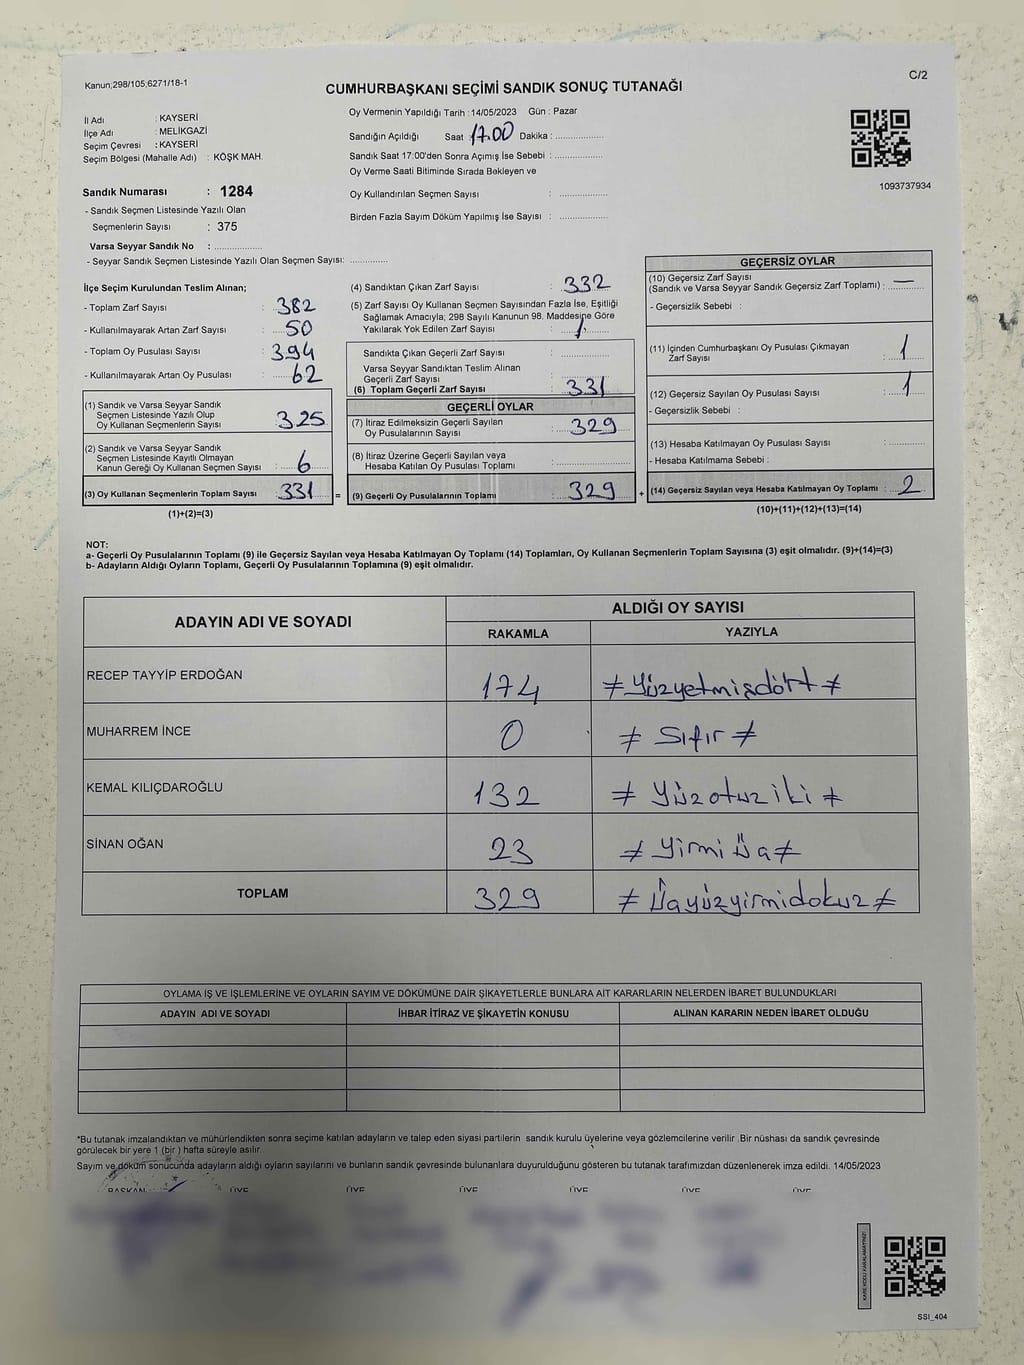 Kanun;298/105;6271/18-1
C/2
CUMHURBAŞKANI SEÇİMİ SANDIK SONUÇ TUTANAĞI
İl Adı : KAYSERİ
İlçe Adı : MELİKGAZİ
Seçim Çevresi : KAYSERİ
Seçim Bölgesi (Mahalle Adı) : KÖŞK MAH.
Sandık Numarası : 1284
- Sandık Seçmen Listesinde Yazılı Olan
Seçmenlerin Sayısı : 375
Varsa Seyyar Sandık No : ..................
- Seyyar Sandık Seçmen Listesinde Yazılı Olan Seçmen Sayısı: ..............
Oy Vermenin Yapıldığı Tarih : 14/05/2023 Gün : Pazar
Sandığın Açıldığı Saat 17.00 Dakika : ..................
Sandık Saat 17:00'den Sonra Açımış İse Sebebi : ..................
Oy Verme Saati Bitiminde Sırada Bekleyen ve
Oy Kullandırılan Seçmen Sayısı : ..................
Birden Fazla Sayım Döküm Yapılmış İse Sayısı : ..................
1093737934
İlçe Seçim Kurulundan Teslim Alınan;
- Toplam Zarf Sayısı : 382
- Kullanılmayarak Artan Zarf Sayısı : 50
- Toplam Oy Pusulası Sayısı : 394
- Kullanılmayarak Artan Oy Pusulası : 62
(1) Sandık ve Varsa Seyyar Sandık
Seçmen Listesinde Yazılı Olup
Oy Kullanan Seçmenlerin Sayısı : 325
(2) Sandık ve Varsa Seyyar Sandık
Seçmen Listesinde Kayıtlı Olmayan
Kanun Gereği Oy Kullanan Seçmen Sayısı : 6
(3) Oy Kullanan Seçmenlerin Toplam Sayısı : 331 =
(1)+(2)=(3)
(4) Sandıktan Çıkan Zarf Sayısı : 332
(5) Zarf Sayısı Oy Kullanan Seçmen Sayısından Fazla İse, Eşitliği
Sağlamak Amacıyla; 298 Sayılı Kanunun 98. Maddesine Göre
Yakılarak Yok Edilen Zarf Sayısı : 1
Sandıkta Çıkan Geçerli Zarf Sayısı : ..................
Varsa Seyyar Sandıktan Teslim Alınan
Geçerli Zarf Sayısı : ..................
(6) Toplam Geçerli Zarf Sayısı : 331
GEÇERLİ OYLAR
(7) İtiraz Edilmeksizin Geçerli Sayılan
Oy Pusulalarının Sayısı : 329
(8) İtiraz Üzerine Geçerli Sayılan veya
Hesaba Katılan Oy Pusulası Toplamı : ..................
(9) Geçerli Oy Pusulalarının Toplamı : 329 +
GEÇERSİZ OYLAR
(10) Geçersiz Zarf Sayısı
(Sandık ve Varsa Seyyar Sandık Geçersiz Zarf Toplamı) : —
- Geçersizlik Sebebi :
(11) İçinden Cumhurbaşkanı Oy Pusulası Çıkmayan
Zarf Sayısı : 1
(12) Geçersiz Sayılan Oy Pusulası Sayısı : 1
- Geçersizlik Sebebi :
(13) Hesaba Katılmayan Oy Pusulası Sayısı : ..............
- Hesaba Katılmama Sebebi :
(14) Geçersiz Sayılan veya Hesaba Katılmayan Oy Toplamı : 2
(10)+(11)+(12)+(13)=(14)
NOT:
a- Geçerli Oy Pusulalarının Toplamı (9) ile Geçersiz Sayılan veya Hesaba Katılmayan Oy Toplamı (14) Toplamları, Oy Kullanan Seçmenlerin Toplam Sayısına (3) eşit olmalıdır. (9)+(14)=(3)
b- Adayların Aldığı Oyların Toplamı, Geçerli Oy Pusulalarının Toplamına (9) eşit olmalıdır.
ADAYIN ADI VE SOYADI
ALDIĞI OY SAYISI
RAKAMLA YAZIYLA
RECEP TAYYİP ERDOĞAN 174 ≠ Yüzyetmişdört ≠
MUHARREM İNCE 0 ≠ Sıfır ≠
KEMAL KILIÇDAROĞLU 132 ≠ Yüzotuziki ≠
SİNAN OĞAN 23 ≠ Yirmi Üç ≠
TOPLAM 329 ≠ Üçyüzyirmidokuz ≠
OYLAMA İŞ VE İŞLEMLERİNE VE OYLARIN SAYIM VE DÖKÜMÜNE DAİR ŞİKAYETLERLE BUNLARA AİT KARARLARIN NELERDEN İBARET BULUNDUKLARI
ADAYIN ADI VE SOYADI İHBAR İTİRAZ VE ŞİKAYETİN KONUSU ALINAN KARARIN NEDEN İBARET OLDUĞU
*Bu tutanak imzalandıktan ve mühürlendikten sonra seçime katılan adayların ve talep eden siyasi partilerin sandık kurulu üyelerine veya gözlemcilerine verilir .Bir nüshası da sandık çevresinde
görülecek bir yere 1 (bir ) hafta süreyle asılır.
Sayım ve döküm sonucunda adayların aldığı oyların sayılarını ve bunların sandık çevresinde bulunanlara duyurulduğunu gösteren bu tutanak tarafımızdan düzenlenerek imza edildi. 14/05/2023
BAŞKAN ÜYE ÜYE ÜYE ÜYE ÜYE ÜYE
KARE KODU KARALAMAYINIZ!
SSI_404